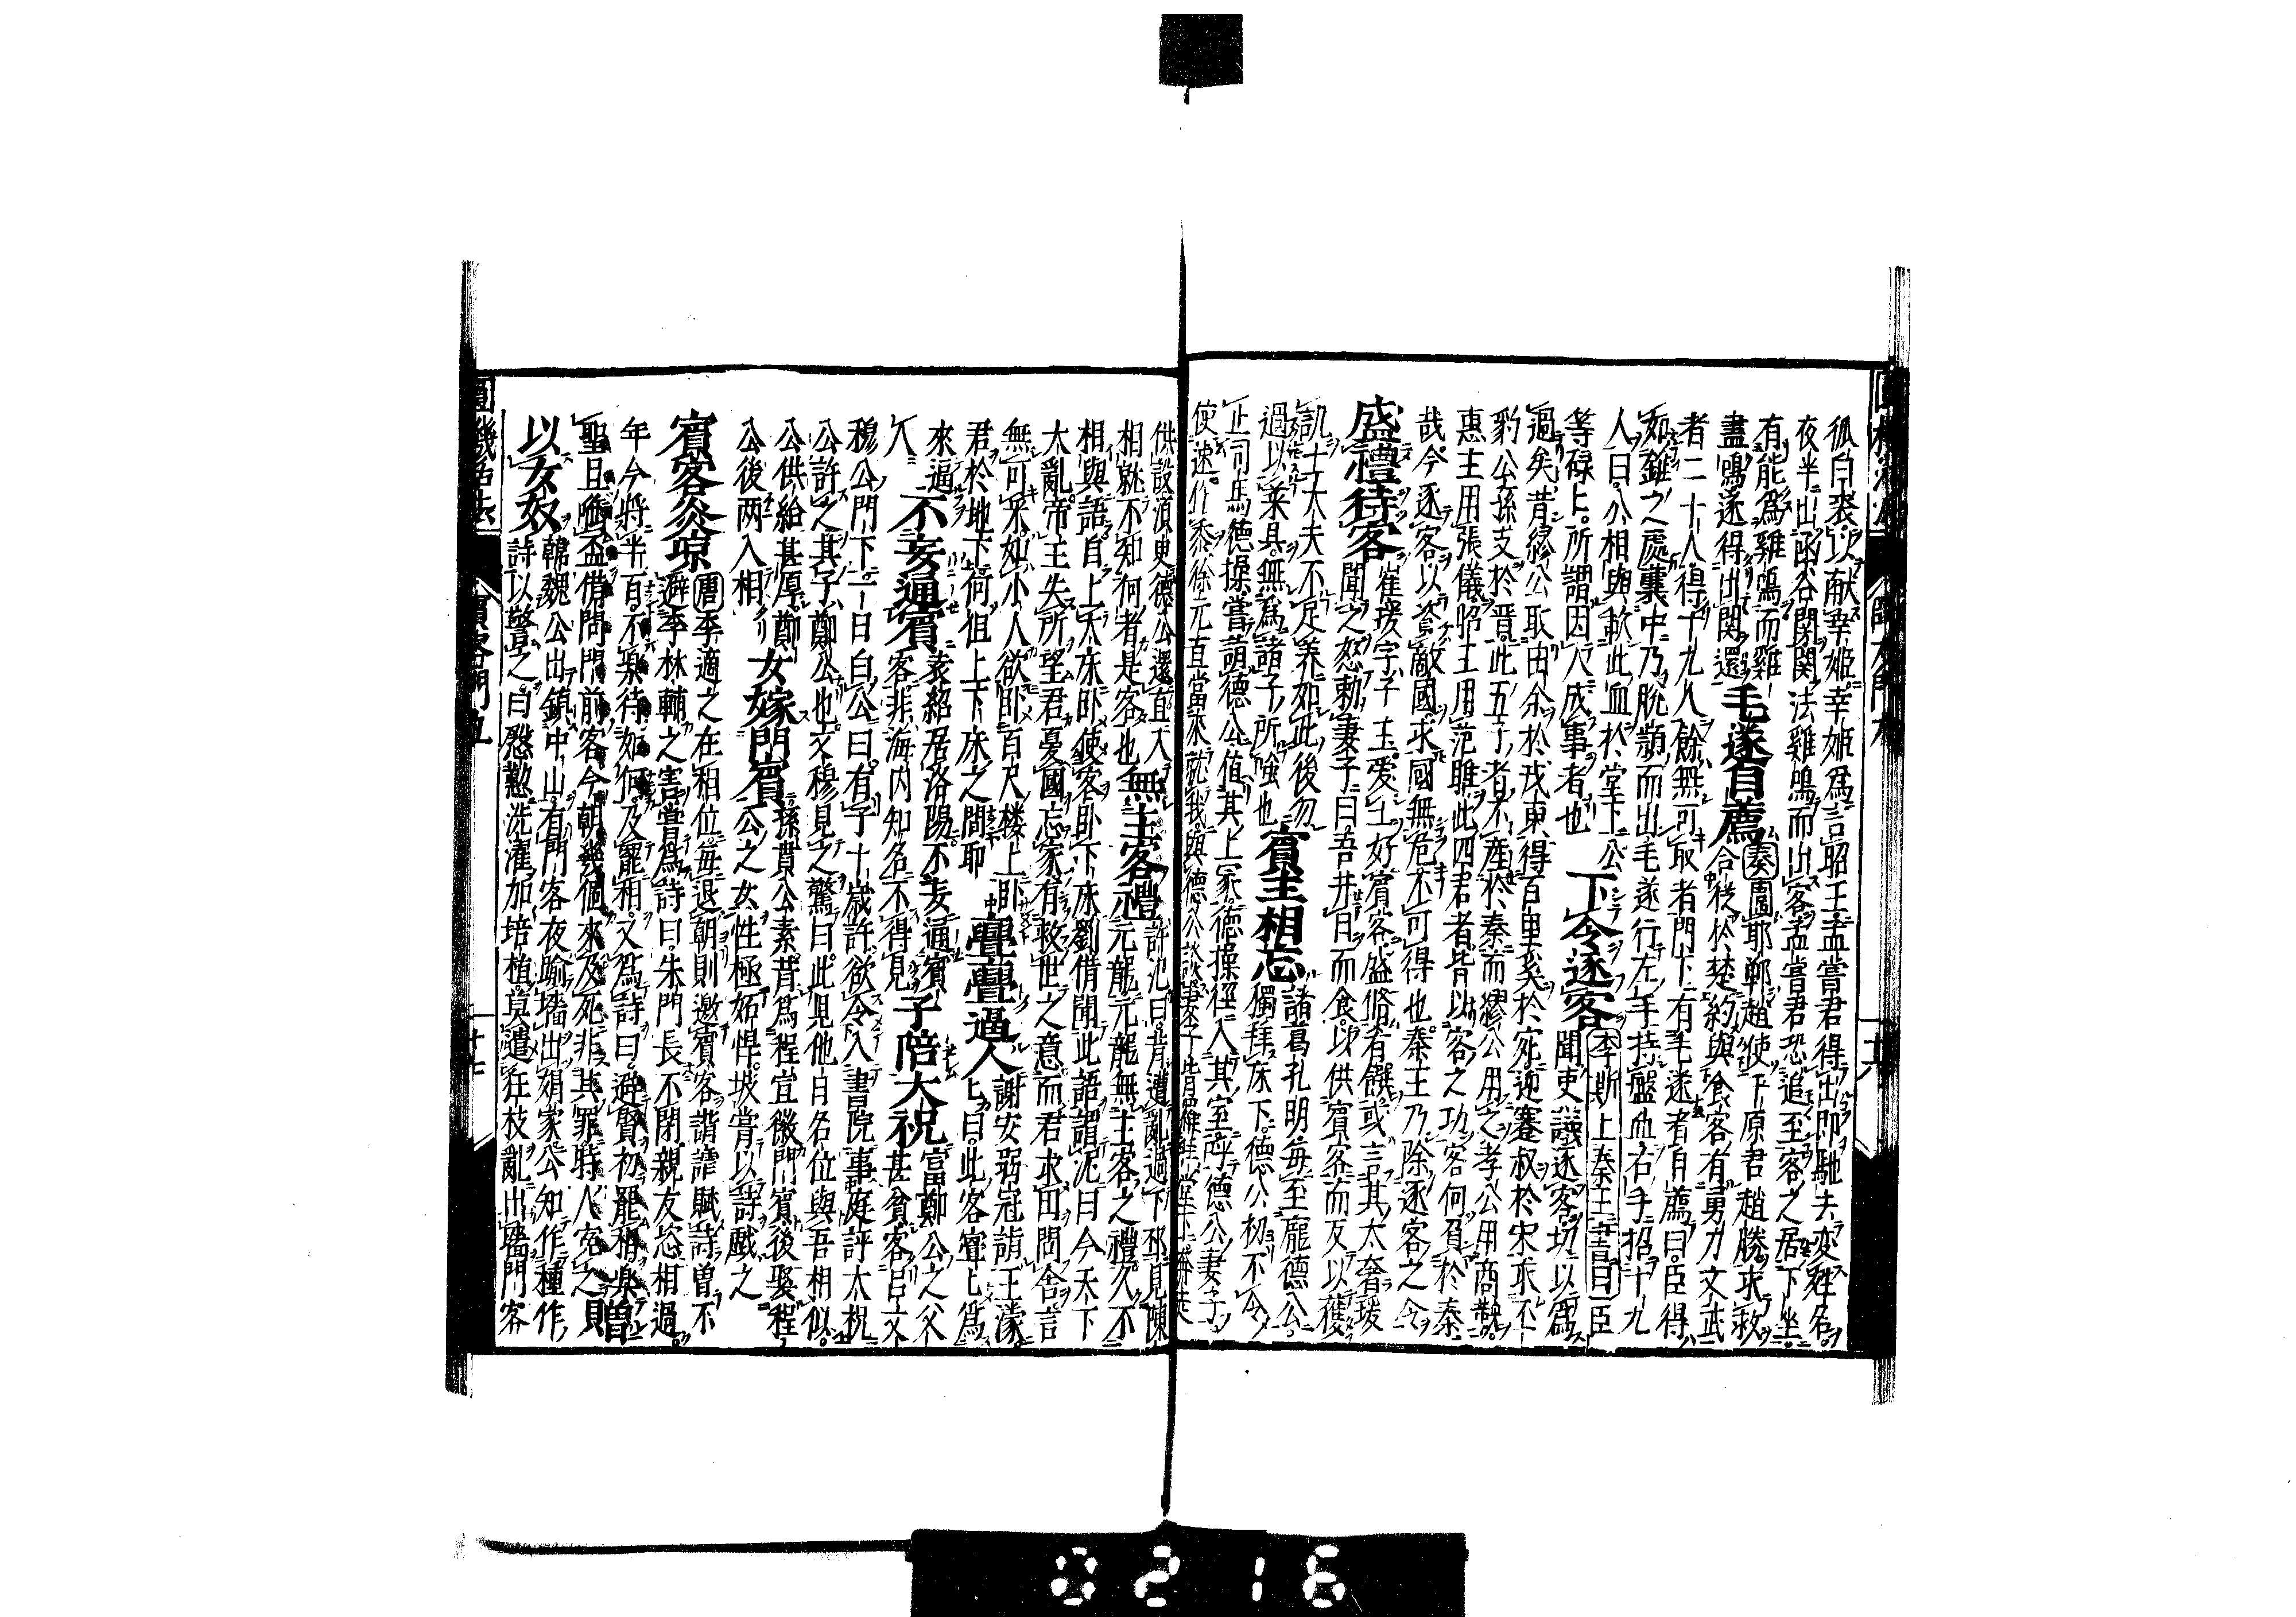 狐白裘以献幸姬幸姬爲言昭王孟嘗君得出即馳去変姓名
夜半出函谷関関法雞鳴而出客孟嘗君恐追至客之居下坐
有能爲雞鳴而雞
盡鳴遂得出関還 毛遂自薦 秦圍邯鄲趙使平原君趙勝求救
合從於楚約與食客有勇力文武
者二十人得十九人餘無可取者門下有毛遂者自薦曰臣得
如錐之處囊中乃脱頴而出毛遂行左手持盤血右手招十九
人曰公相與歃此血於堂下公
等碌上所謂因人成事者也 下令逐客 李斯上秦王書曰臣
聞吏議逐客切以爲
過矣昔繆公取由余於戎東得百里奚於宛迎蹇叔於宋求丕
豹公孫支於晋此五子者不産於秦而繆公用之孝公用商鞅
惠王用張儀昭王用范雎此四君者皆以客之功客何負於秦
哉今逐客以資敵國求國無危不可得也秦王乃除逐客之令
盛禮待客 崔援字子玉愛士好賓客盛脩有饌或言其太奢瑗
聞之怒勅妻子曰吾并日而食以供賓客而反以獲
訕士大夫不足養如此後勿
過以菜具無為諸子所嗤也 賓主相忘 諸葛孔明每至龐德公
獨拜床下德公初不令
止司馬德操嘗詣德公值其上冢德操徑入其室呼德公妻子
使速作黍徐元直當來就我與德公談妻子皆羅拜堂下奔走
供設湏臾德公還直入
相就不知何者是客也 無主客禮 許汜曰昔遭亂過下邳見陳
元龍元龍無主客之禮久不
相與語自上大床卧使客卧下床劉備聞此語謂汜曰今天下
太亂帝王失所望君憂國忘家有救世之意而君求田問舎言
無可采如小人欲卧百尺楼上卧
君於地下何但上下床之間耶 亹亹過人 謝安弱冠詣王濛
上曰此客亹上爲
來逼
人 不妄通賓 袁紹居洛陽不妄通賓
客非海内知名不得見 子陪大祝 富鄭公之父
甚貧客呂文
穆公門下一日白公曰有子十歳許欲令入書院事庭評太祝
公許之其子鄭公也文穆見之驚曰此児他日名位與吾相似
公供給甚厚鄭
公後两入相 女嫁門賓 孫賁公素昔爲程宣徽門賓後娶程
公之女性極妬悍坡嘗以詩戯之
賓客炎凉 唐李適之在相位每退朝則邀賓客諧謔賦詩曽不
避李林輔之害嘗爲詩曰朱門長不閉親友恣相過
年今將半百不樂待如何及罷相又爲詩曰避賢初罷相樂
聖且啣盃借問門前客今朝幾個來及死非其罪時人寃之 贈
以女奴 韓魏公出鎮中山有門客夜踰墻出娼家公知作種作
詩以警之曰慇懃洗濯加培植莫遣狂枝亂出墻門客